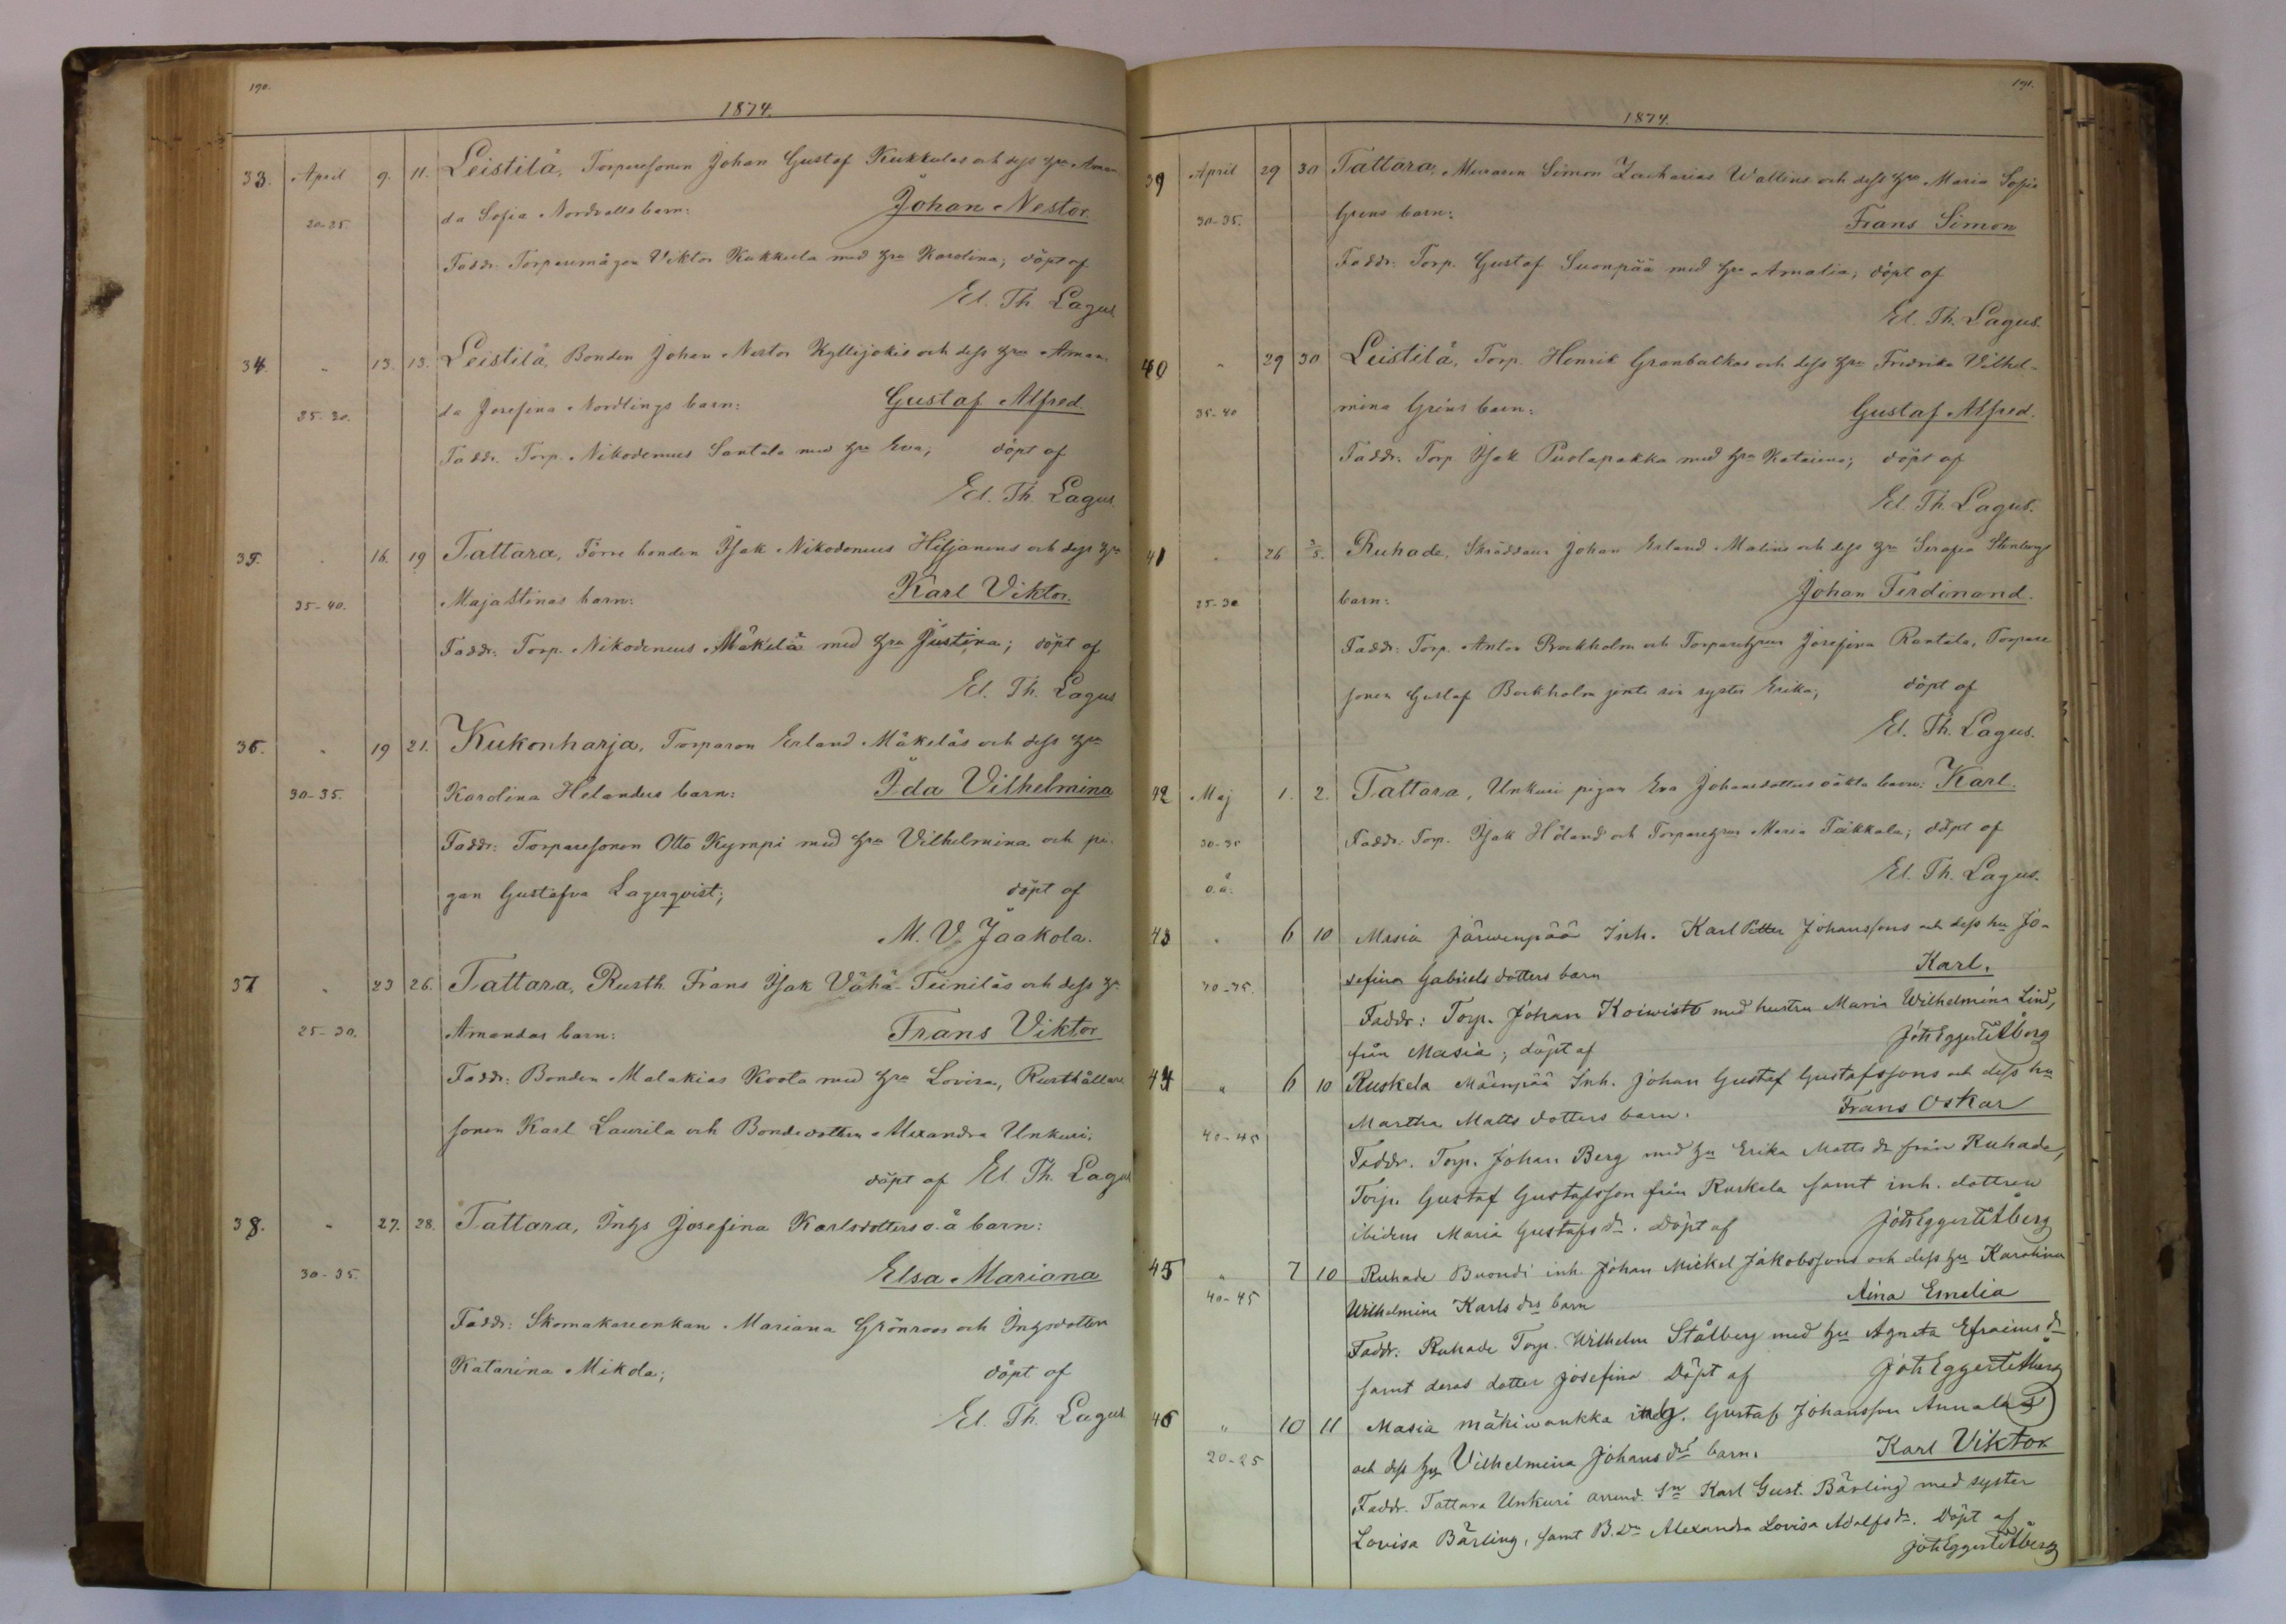 190.
1874.
33. April 9. 11. Leistilä, Torparesonen Johan Gustaf Kukkulas och dess hru Aman-
20-25. da Sofia Nordvalls barn: Johan Nestor.
Faddr. Torparemågen Viktor Kukkula med hru Karolina; döpt af
El. Th. Lagus
34. " 13. 13. Leistilä, Bonden Johan Nestor Kyllijokis och dess hru Aman-
25-30. da Josefina Nordlings barn: Gustaf Alfred.
Faddr. Torp. Nikodemus Santala med hru Eva; döpt af
El. Th. Lagus.
35. " 16. 19 Tattara, Förre bonden Isak Nikodemus Hiljanens och dess hru
35-40. Maja Stinas barn: Karl Viktor.
Faddr: Torp. Nikodemus Mäkelä med hru Justina; döpt af
El. Th. Lagus
36. " 19 21. Kukonharja, Torparen Erland Mäkeläs och dess hru
30-35. Karolina Helanders barn: Ida Vilhelmina
Faddr: Torparesonen Otto Kympi med hru Vilhelmina och pi-
gan Gustafva Lagerqvist; döpt af
M. V. Jaakola.
37 " 23 26. Tattara, Rusth. Frans Isak Vähä-Teiniläs och dess hr
25-30. Amandas barn: Frans Viktor
Faddr: Bonden Malakias Koota med hru Lovisa, Rusthållare
sonen Karl Laurila och Bondedottren Alexandra Unkuri,
döpt af El. Th. Lagus
38. " 27. 28. Tattara, Inhs Josefina Karlsdotters o.ä barn:
30-35. Elsa Mariana
Faddr: Skomakareenkan Mariana Grönroos och Inhsdottern
Katarina Mikola; döpt af
El. Th. Lagus
191.
1874.
39 April 29 30 Tattara, Muraren Simon Zacharias Wallins och dess hru Maria Sofia
30-35. Gröns barn: Frans Simon
Faddr: Torp. Gustaf Suonpää med hru Amalia; döpt af
El. Th. Lagus.
40 " 29 30 Leistilä, Torp. Henrik Granbalkas och dess hru Fredrika Vilhel-
35-40 mina Gröns barn: Gustaf Alfred.
Faddr: Torp Isak Puolapakka med hru Katarina; döpt af
El. Th. Lagus.
41 " 26 3/5. Ruhade, Skräddaren Johan Erland Malins och dess hru Serafia Stenbergs
25-30 barn: Johan Ferdinand.
Faddr: Torp. Anton Bockholm och Torparehrun Josefina Rantala, Torpare
sonen Gustaf Bockholm jemte sin syster Erika; döpt af
El. Th. Lagus.
42 Maj 1. 2. Tattara, Unkuri pigan Eva Johansdotters oäkta barn: Karl.
30-35 Faddr: Torp. Isak Höland och Torparehrun Maria Takkala; döpt af
o.ä. El. Th. Lagus.
43 " 6 10 Masia Järwenpää Inh. Karl Petter Johanssons och dess hu Jo-
30-35. sefina Gabriels dotters barn Karl.
Faddr: Torp. Johan Koiwisto med hustru Maria Wilhelmina Lind,
från Masia; döpt af Joh Eggert Etåberg
44 " 6 10 Ruskela Mäenpää Inh. Johan Gustaf Gustafssons och dess hu
40-45 Martha Matts dotters barn. Frans Oskar
Faddr. Torp. Johan Berg med hu Erika Matts dr från Ruhade,
Torp. Gustaf Gustafsson från Ruskela samt inh. dottren
ibidem Maria Gustafs dr. Döpt af Joh Eggert Etåberg
45 " 7 10 Ruhade Buondi inh. Johan Mickel Jakobssons och dess hu Karolina
40-45 Wilhelmina Karls drs barn Aina Emelia
Faddr: Ruhade Torp. Wilhelm Stålberg med hu Agneta Efraims dr
samt deras dotter Josefina Döpt af Joh Eggert Etåberg
46 " 10 11 Masia mäkiwankka inh. Gustaf Johansson Annalas
20-25 och dess hu Vilhelmina Johans drs barn. Karl Viktor
Faddr. Tattara Unkuri arrend. sn Karl Gust. Bärling med syster
Lovisa Bärling, samt B. dr Alexandra Lovisa Adolfs dr. Döpt af
Joh Eggert Etåberg